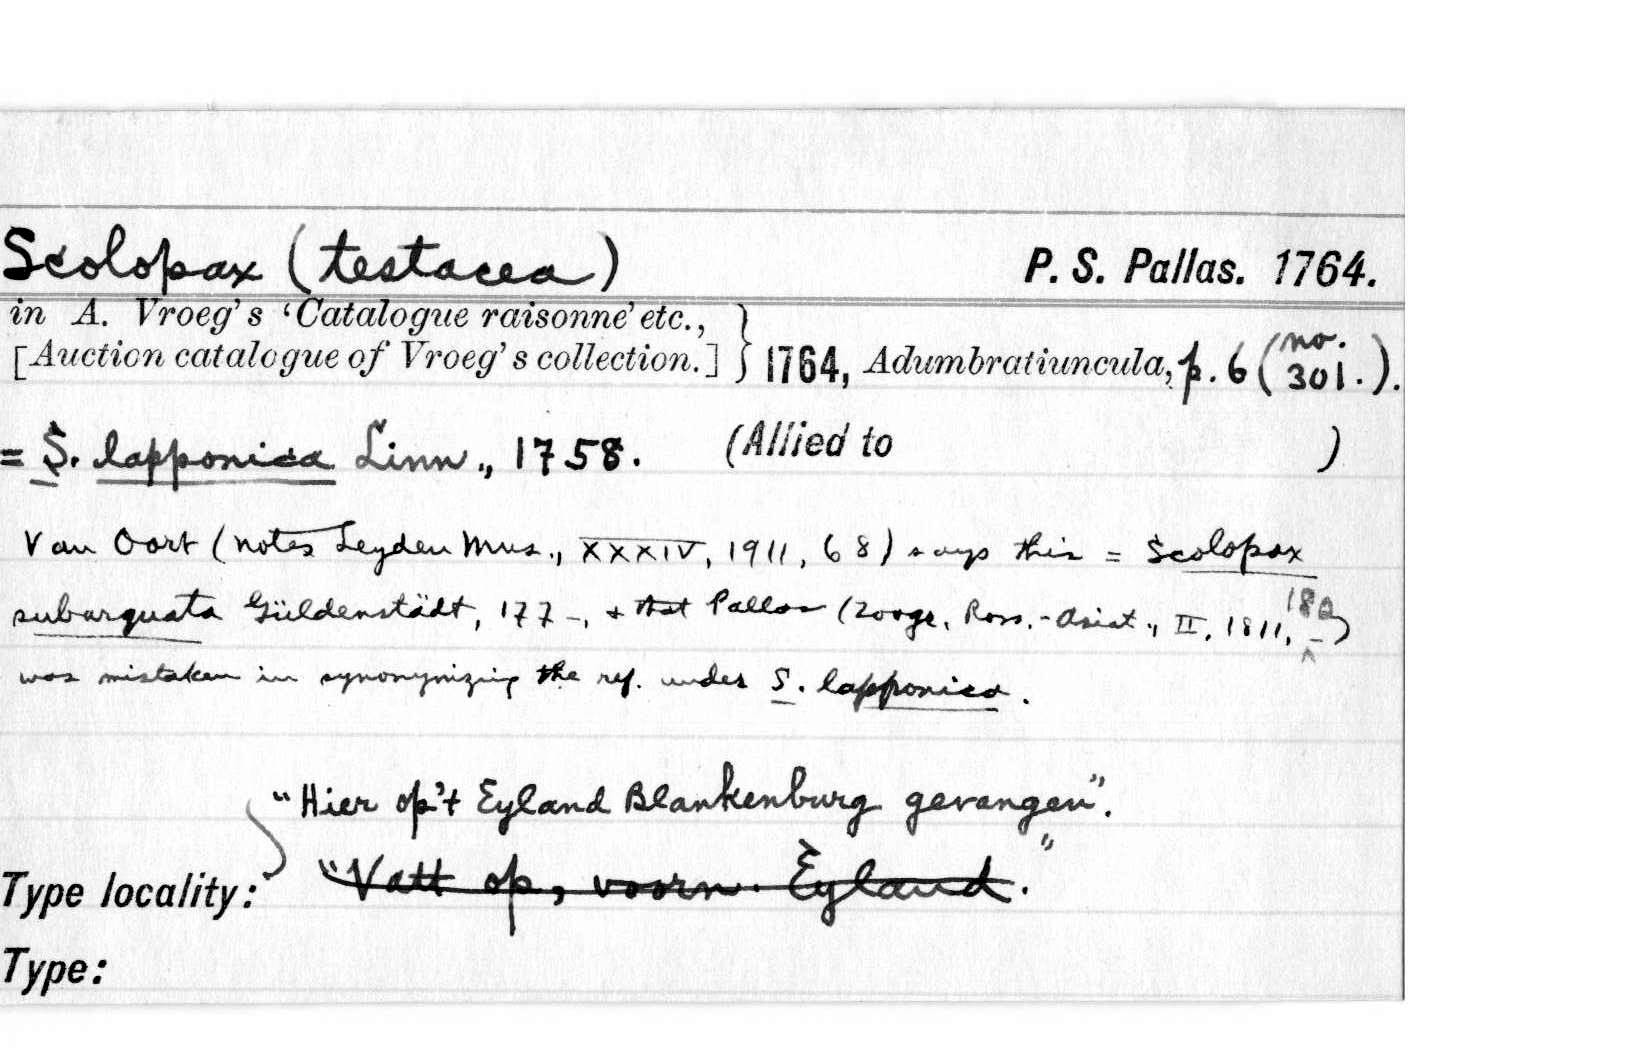 Scolopax (testacea) P. S. Pallas. 1764.
in A. Vroeg's 'Catalogue raisonne' etc.,
[Auction catalogue of Vroeg's collection.] } 1764, Adumbratiuncula, p. 6 (no. 301.).
= S. lapponica Linn., 1758. (Allied to )
Van Oort (notes Leyden Mus., XXXIV, 1911, 68) says this = Scolopax
subarquata Güldenstädt, 177-, + that Pallas (Zoogr. Ross.-Asiat., II, 1811, 182)
was mistaken in synonymizing the ref. under S. lapponica.
"Hier op't Eyland Blankenburg gevangen".
Type locality: "Vatt op, voorn. Eyland."
Type: